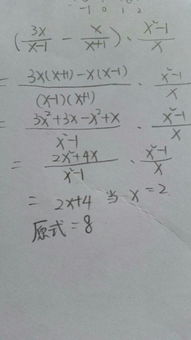 -1 0 1 2
(3x/(x-1) - x/(x+1)) · (x²-1)/x
= (3x(x+1)-x(x-1))/((x-1)(x+1)) · (x²-1)/x
= (3x²+3x-x²+x)/(x²-1) · (x²-1)/x
= (2x²+4x)/(x²-1) · (x²-1)/x
= 2x+4 当 x=2
原式=8